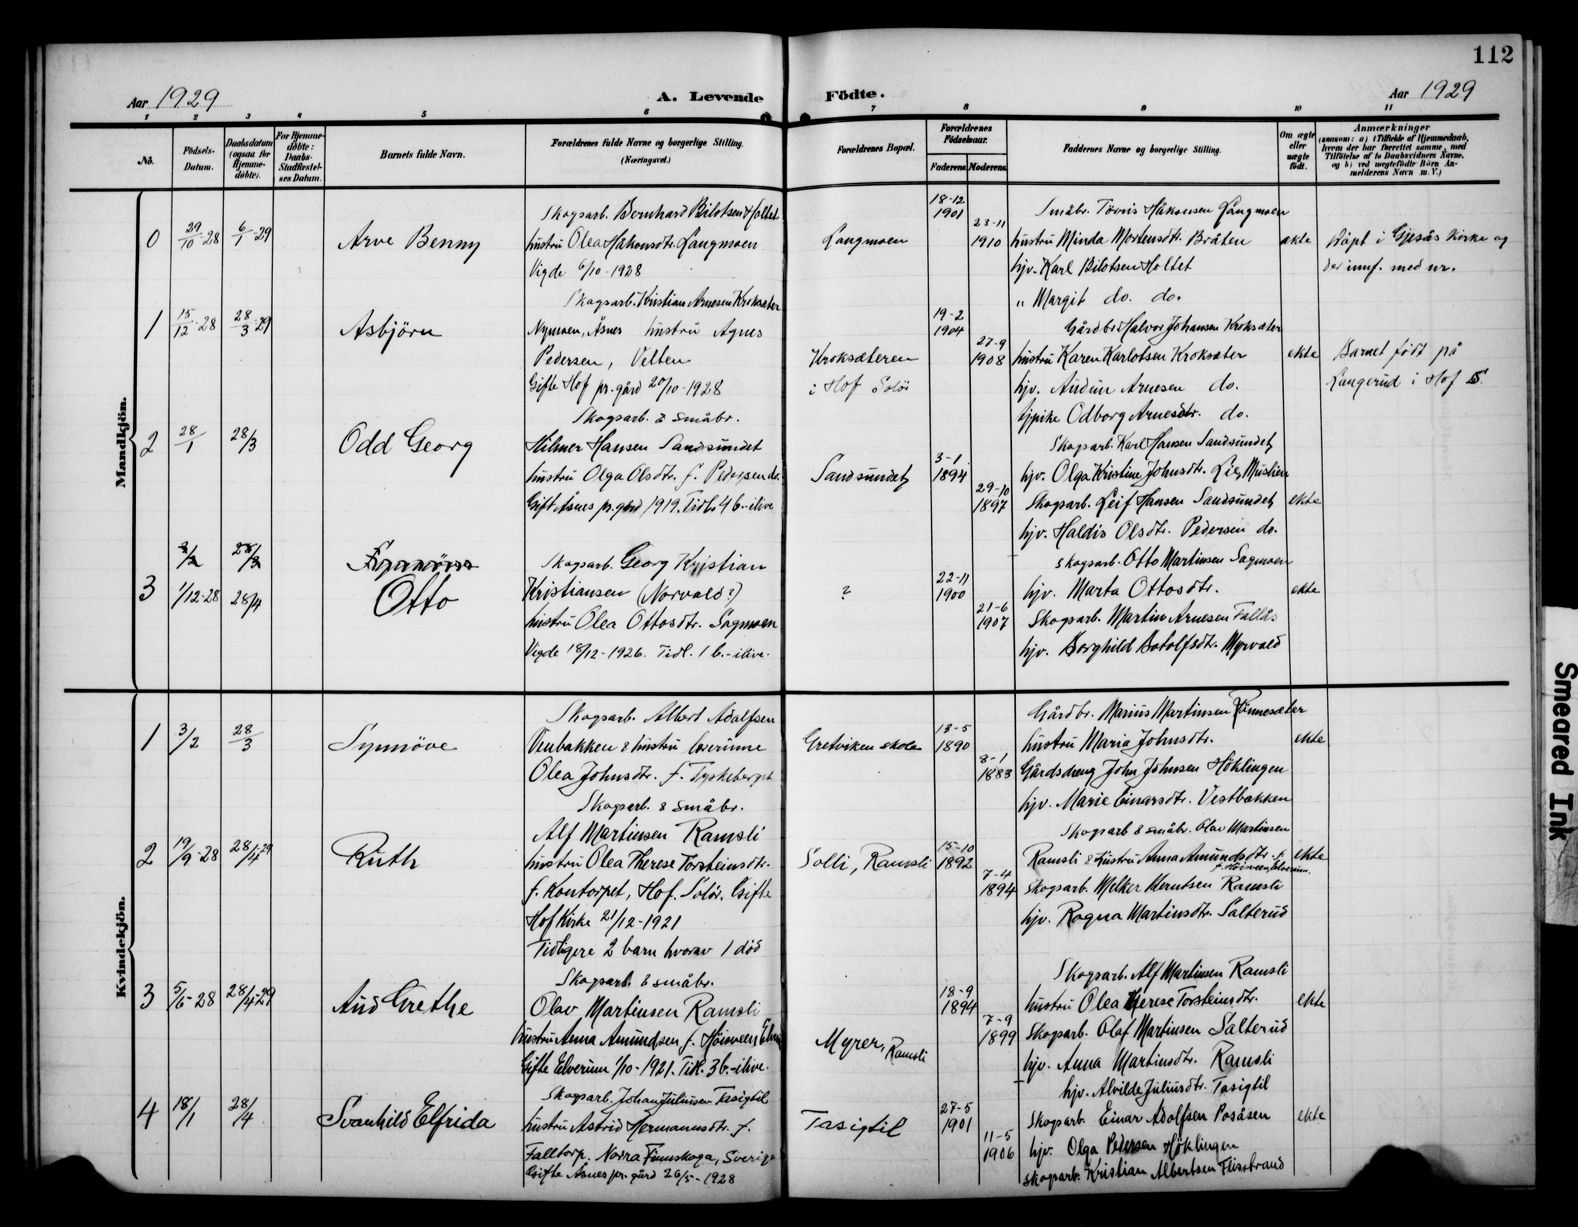 112
Aar 1929
A. Levende
Födte.
Aar 1929
1 2 3 4 5 6 7 8 9 10 11
No.
Födsels-
Datum.
Daabsdatum
(ogsaa for
Hjemme-
döbte).
For Hjemme-
döbte:
Daabs-
Stadfæstel-
ses Datum.
Barnets fulde Navn.
Forældrenes fulde Navne og borgerlige Stilling.
(Næringsvei.)
Forældrenes Bopæl.
Forældrenes
Födselsaar.
Faderens. Moderens.
Faddernes Navne og borgerlige Stilling.
Om ægte
eller
uægte
födt.
Anmærkninger
(saasom: a) i Tilfælde af Hjemmedaab,
hvem der har forrettet samme, med
Tilföielse af to Daabsvidners Navne,
og b) ved uægtefödte Börn An-
melderens Navn m. V.)
Mandkjön.
0
29/10-28
6/1-29
Arve Benny
Skogsarb. Bernhard Bilotsen Holtet
hustru Olea Håkonsdtr. Langmoen
Vigde 6/10-1928
Langmoen
18-12
1901
23-11
1910
Småbr. Törris Håkonsen Langmoen
hustru Minda Mortensdtr. Bråten
hjv. Karl Bilotsen Holtet
" Margit do. do.
ekte
Döpt i Gjesås Kirke og
der innf. med nr.
1
15/12-28
28/3-29
Asbjörn
Skogsarb. Kristian Arnesen Kroksæter
Nymoen, Åsnes hustru Agnes
Pedersen, Velten
Gifte Hof pr. gård 20/10-1928
Kroksæteren
i Hof Solör
19-2
1904
27-9
1908
Gårdbr. Halvor Johansen Kroksæter
hustru Karen Karlotsen Kroksæter
hjv. Audun Arnesen do.
hjpike Odborg Arnesdtr. do.
ekte
Barnet född på
Langerud i Hof S.
2
28/1
28/3
Odd Georg
Skogsarb. & småbr.
Hilmer Hansen Sandsundet
hustru Olga Olsdtr. f. Pedersen do.
Gift Åsnes pr. gård 1919. Tidl. 4 b.-ilive
Sandsundet
3-1
1894
29-10
1897
Skogsarb. Karl Hansen Sandsundet
hjv. Olga Kristine Johnsdtr. Lie,
Skogsarb. Leif Hansen Sandsundet
hjv. Haldis Olsdtr. Pedersen do.
ekte
3/2
28/3
Synnöve
3
1/12-28
28/4
Otto
Skogsarb. Georg Kristian
Kristiansen (Norvald?)
hustru Olea Ottosdtr. Sagmoen
Vigde 18/12-1926. Tidl. 1 b.-ilive.
?
22-11
1900
21-6
1907
Skogsarb. Otto Martinsen Sagmoen
hjv. Marta Ottosdtr.
Skogsarb. Martin Arnesen Fallås
hjv. Borghild Botolfsdtr. Myrvold
ekte
Kvindekjön.
1
3/2
28/3
Synnöve
Skogsarb. Albert Adolfsen
Venbakken & hustru
Olea Johnsdtr. f. Tyskeberget
Gretviken skole
13-5
1890
8-1
1883
Gårdbr. Marius Martinsen Rönnesæter
hustru Maria Johnsdtr.
Gårdsdreng John Johnsen Höklingen
hjv. Marie Einarsdtr. Vestbakken
ekte
2
19/9-28
28/4-29
Ruth
Skogsarb. & småbr.
Alf Martinsen Ramsli
hustru Olea Therese Torsteinsdtr.
f. Kontorpet, Hof. Solör. Gifte
Hof Kirke 21/12-1921
Tidligere 2 barn hvorav 1 död
Solli, Ramsli
15-10
1892
7-4
1894
Skogsarb & småbr. Olav Martinsen
Ramsli & hustru Anna Amundsdtr.
f. Höisveen Elverum.
Skogsarb. Melker Knutsen Ramsli
hjv. Ragna Martinsdtr. Salterud
ekte
3
5/6-28
28/4-29
Aud Grethe
Skogsarb. & småbr.
Olav Martinsen Ramsli
hustru Anna Amundsen f. Höisveen, Elverum
Gifte Elverum 1/10-1921. Tidl. 3 b.-ilive.
Myrer, Ramsli
18-9
1894
7-9
1899
Skogsarb. Alf Martinsen Ramsli
hustru Olea Therese Torsteinsdtr.
Skogsarb. Olaf Martinsen Salterud
hjv. Anna Martinsdtr. Ramsli
ekte
4
18/1
28/4
Svanhild Elfrida
Skogsarb. Johan Juliussen Tasigtil
hustru Astrid Hermannsdtr. f.
Falltorp. Norra Finnskoga, Sverige
Gifte Åsnes pr. gård 26/5-1928
Tasigtil
27-5
1901
11-5
1906
hjv. Alvilde Juliusdtr. Tasigtil
Skogsarb. Einar Adolfsen Posåsen
hjv. Olga Pedersen Höklingen
skogsarb. Kristian Albertsen Flisstrand
ekte
Smeared Ink